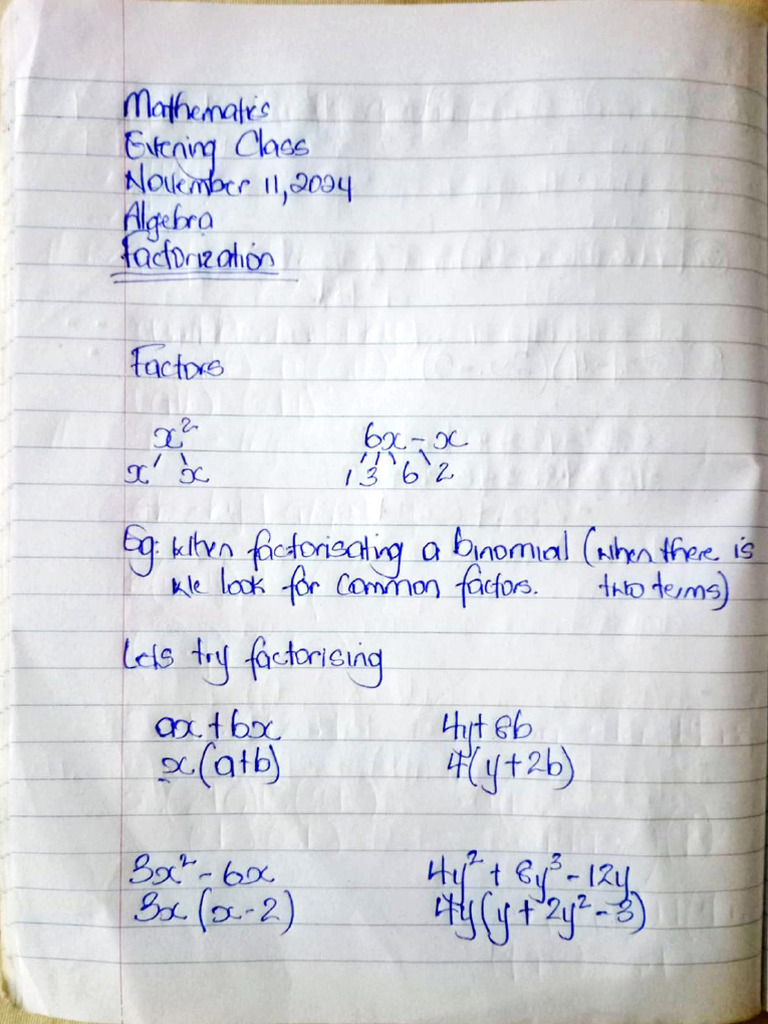 Mathematics
Evening Class
November 11, 2024
Algebra
Factorization
Factors
x² 6x - x
x x 1 3 6 2
Eg: When factorisating a binomial (when there is
We look for common factors. two terms)
Lets try factorising
ax + bx 4y + 8b
x(a+b) 4(y+2b)
3x² - 6x 4y² + 8y³ - 12y
3x(x-2) 4y(y + 2y² - 3)